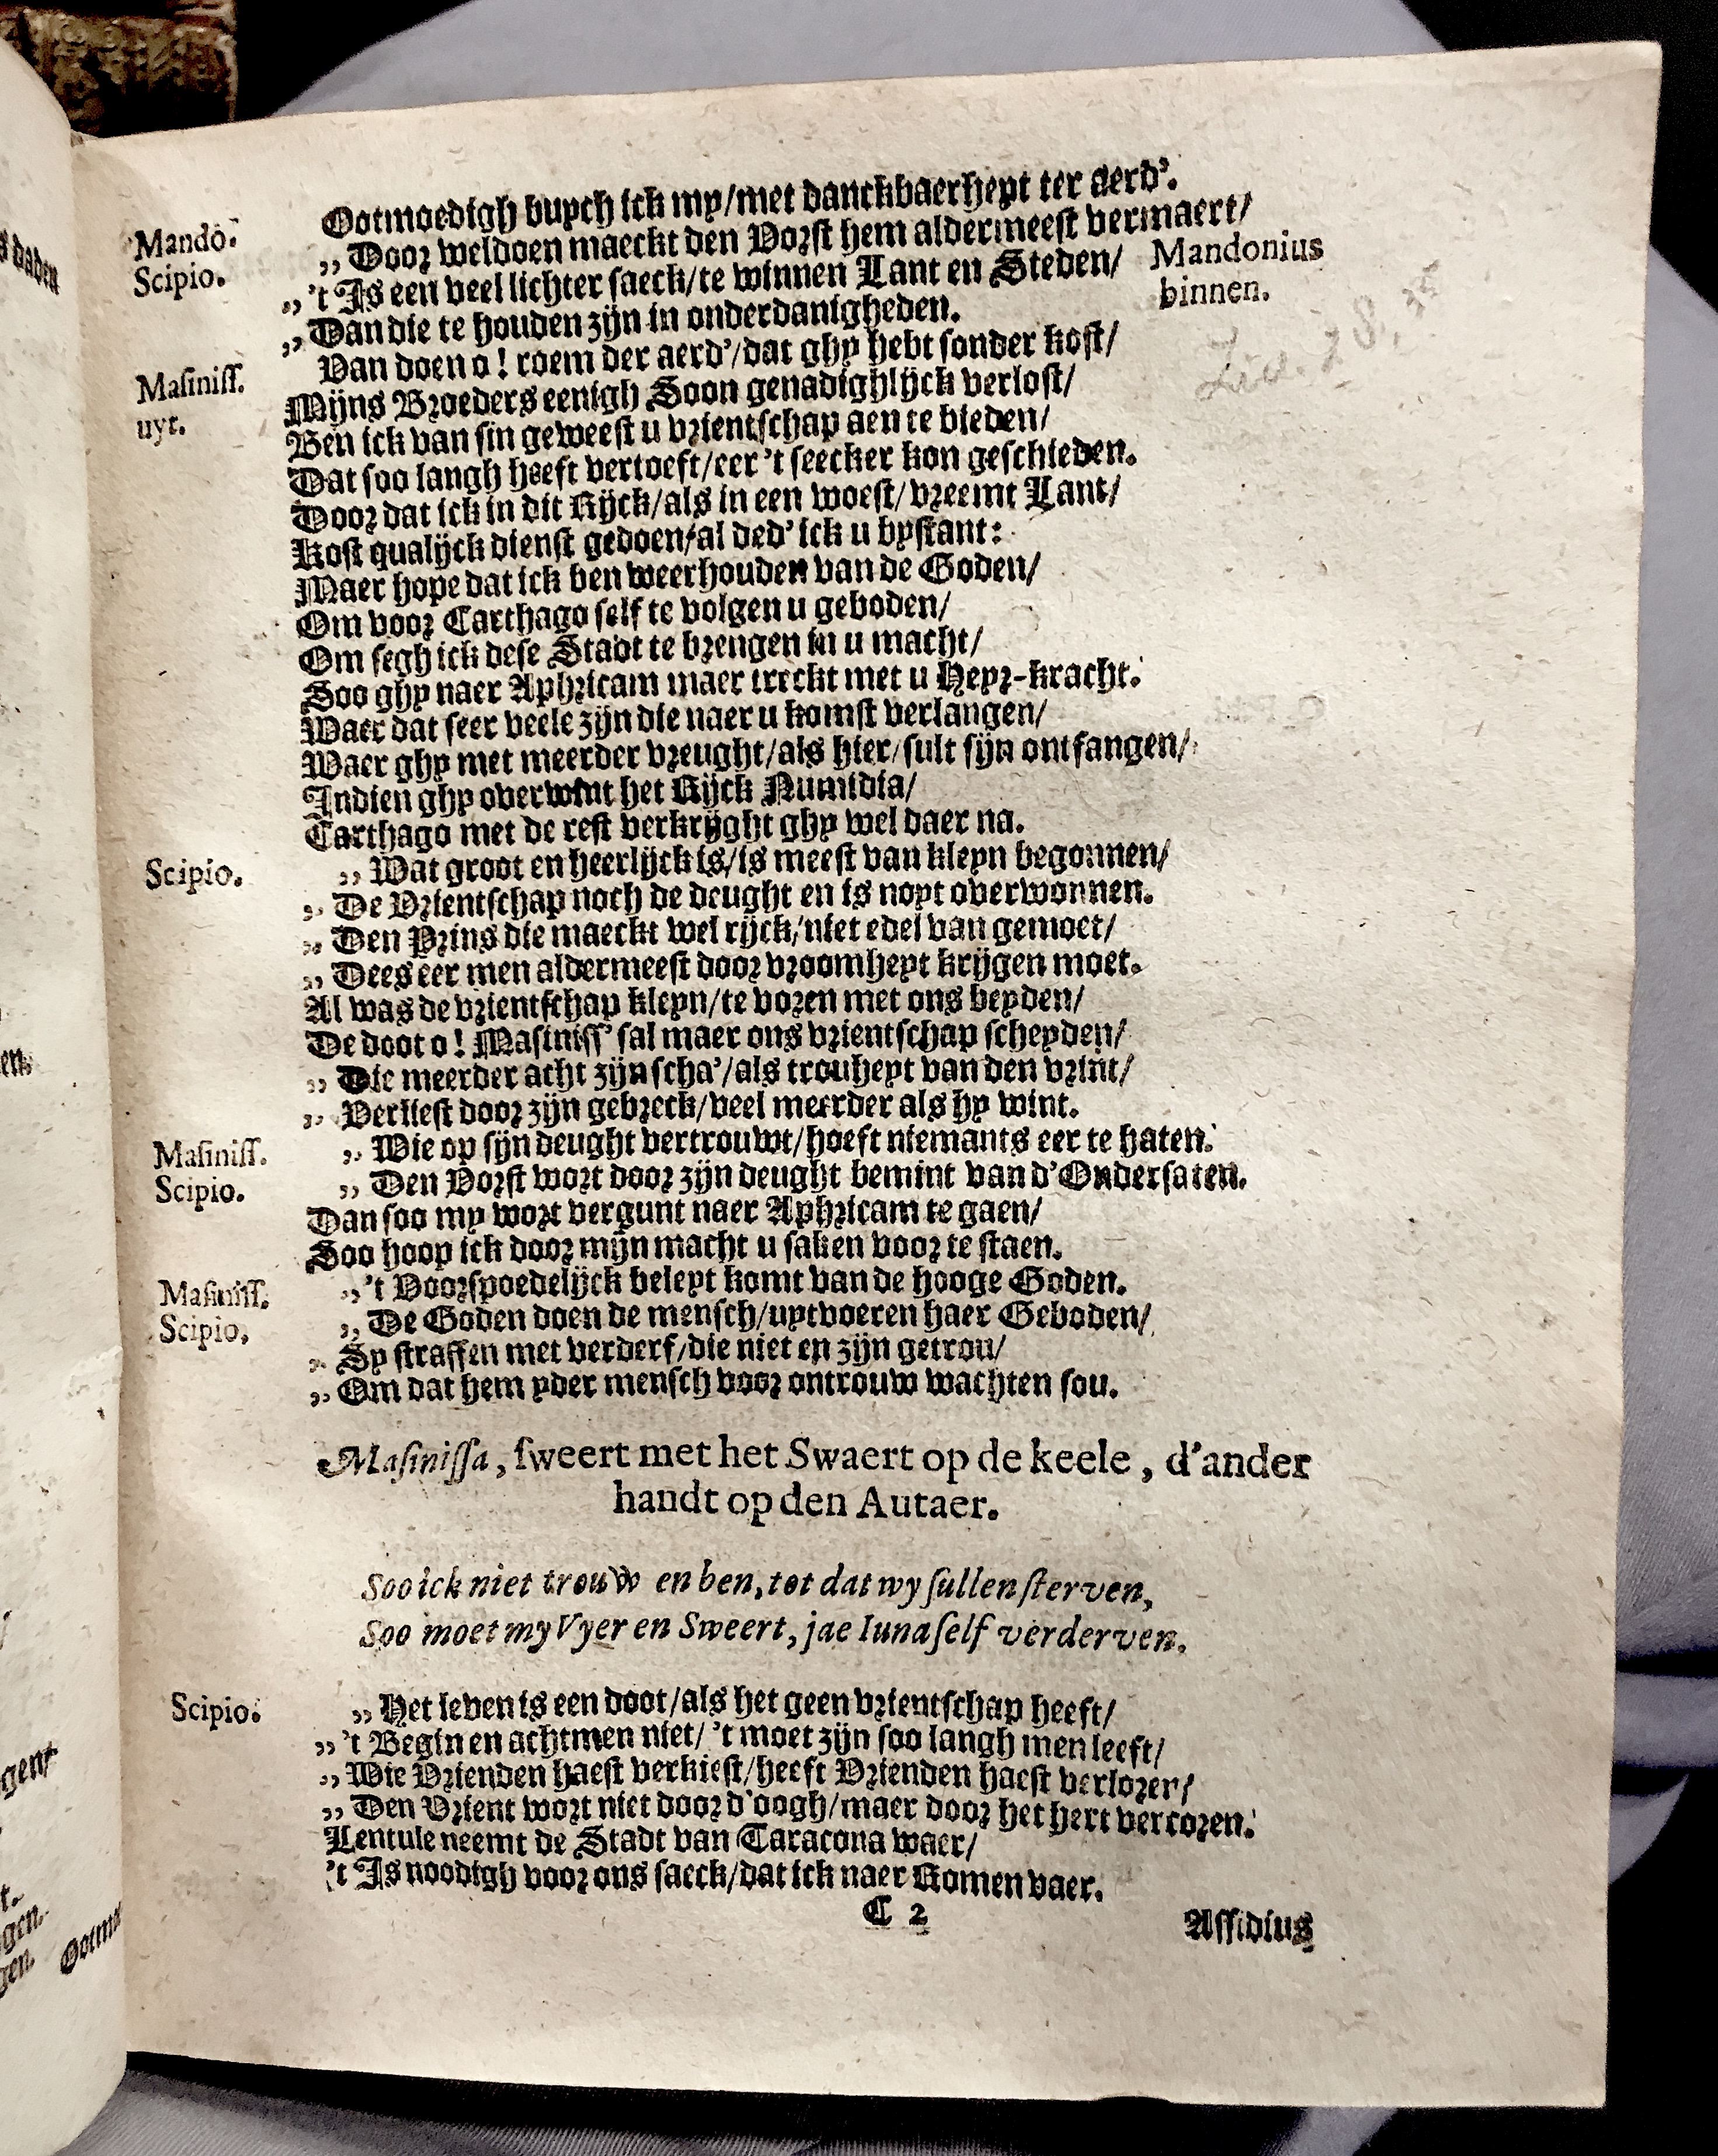 Mando. Ootmoedigh buych ick my/met danckbaerheyt ter aerd'.
Scipio. „ Door weldoen maeckt den Vorst hem aldermeest vermaert/
„ 't Is een veel lichter saeck/te winnen Lant en Steden/ Mandonius
„ Dan die te houden zijn in onderdanigheden. binnen.
Masiniss. Van doen o! roem der aerd'/dat ghy hebt sonder kost/
uyt. Mijns Broeders eenigh Soon genadighlijck verlost/
Ben ick van sin geweest u vrientschap aen te bieden/
Dat soo langh heeft vertoeft/eer 't seecker kon geschieden.
Door dat ick in dit Rijck/als in een woest/vreemt Lant/
Kost qualijck dienst gedoen/al ded' ick u bystant:
Maer hope dat ick ben weerhouden van de Goden/
Om voor Carthago self te volgen u geboden/
Om segh ick dese Stadt te brengen in u macht/
Soo ghy naer Aphricam maer treckt met u Heyr-kracht.
Waer dat seer veele zijn die naer u komst verlangen/
Waer ghy met meerder vreught/als hier/sult sijn ontfangen/
Indien ghy overwint het Rijck Numidia/
Carthago met de rest verkrijght ghy wel daer na.
Scipio. „ Wat groot en heerlijck is/is meest van kleyn begonnen/
„ De Vrientschap noch de deught en is noyt overwonnen.
„ Den Prins die maeckt wel rijck/niet edel van gemoet/
„ Dees eer men aldermeest door vroomheyt krijgen moet.
Al was de vrientschap kleyn/te voren met ons beyden/
De doot o! Masiniss' sal maer ons vrientschap scheyden/
„ Die meerder acht zijn scha'/als trouheyt van den vrint/
„ Verliest door zijn gebreck/veel meerder als hy wint.
Masiniss. „ Wie op sijn deught vertrouwt/hoeft niemants eer te haten.
Scipio. „ Den Vorst wort door zijn deught bemint van d'Ondersaten.
Dan soo my wort vergunt naer Aphricam te gaen/
Soo hoop ick door mijn macht u saken voor te staen.
Masiniss. „ 't Voorspoedelijck beleyt komt van de hooge Goden.
Scipio. „ De Goden doen de mensch/uytvoeren haer Geboden/
„ Sy straffen met verderf/die niet en zijn getrou/
„ Om dat hem yder mensch voor ontrouw wachten sou.
Masinissa, sweert met het Swaert op de keele, d'ander
handt op den Autaer.
Soo ick niet trouw en ben, tot dat wy sullen sterven,
Soo moet my Vyer en Sweert, jae Iuna self verderven.
Scipio. „ Het leven is een doot/als het geen vrientschap heeft/
„ 't Begin en achtmen niet/ 't moet zijn soo langh men leeft/
„ Wie Vrienden haest verkiest/heeft Vrienden haest verloren/
„ Den Vrient wort niet door d'oogh/maer door het hert vercozen.
Lentule neemt de Stadt van Taracona waer/
't Is noodigh voor ons saeck/dat ick naer Romen vaer.
C 2 Assidius